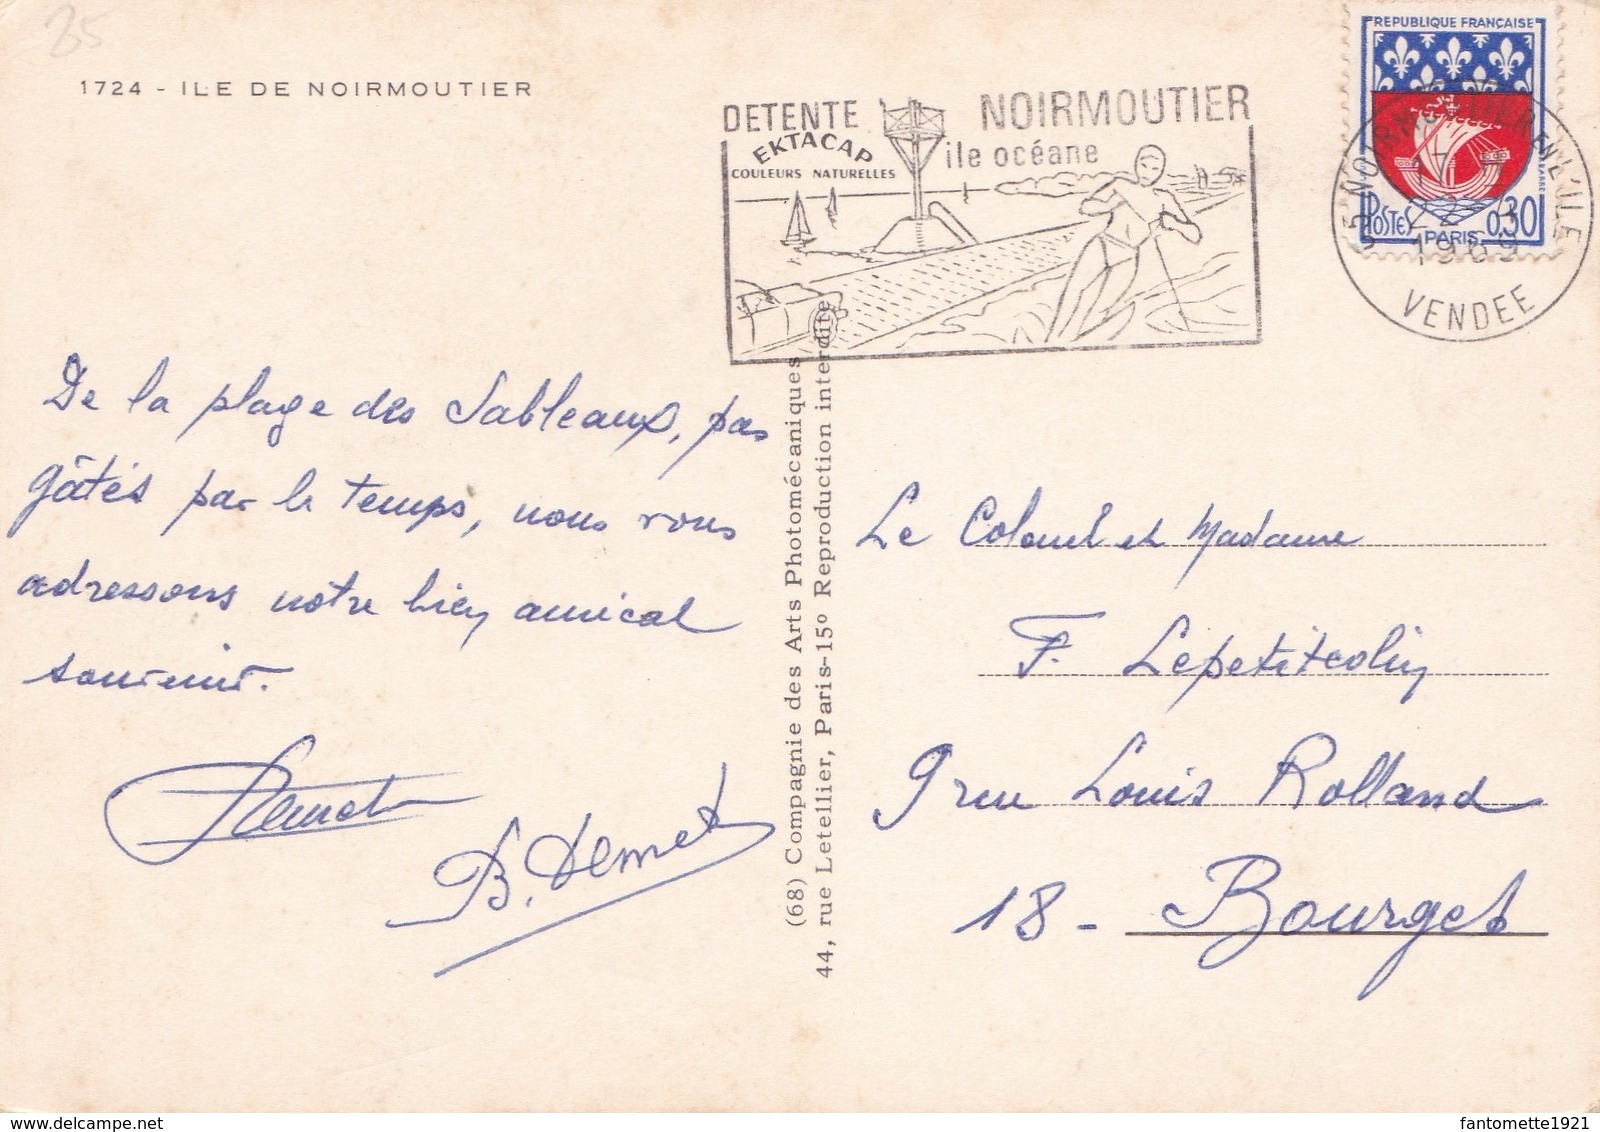 85
1724 - ILE DE NOIRMOUTIER
DETENTE
NOIRMOUTIER
île océane
EKTACAP
COULEURS NATURELLES
REPUBLIQUE FRANÇAISE
POSTES
PARIS
0,30
85 NOIRMOUTIER EN L'ILE
17
1969
VENDEE
De la plage des Sableaux, pas
gâtés par le temps, nous vous
adressons notre bien amical
souvenir.
B. Demet
(68) Compagnie des Arts Photomécaniques
44, rue Letellier, Paris-15º Reproduction interdite
Le Colonel et Madame
F. Lepetitcolin
9 rue Louis Rolland
18 - Bourges
fantomette1921